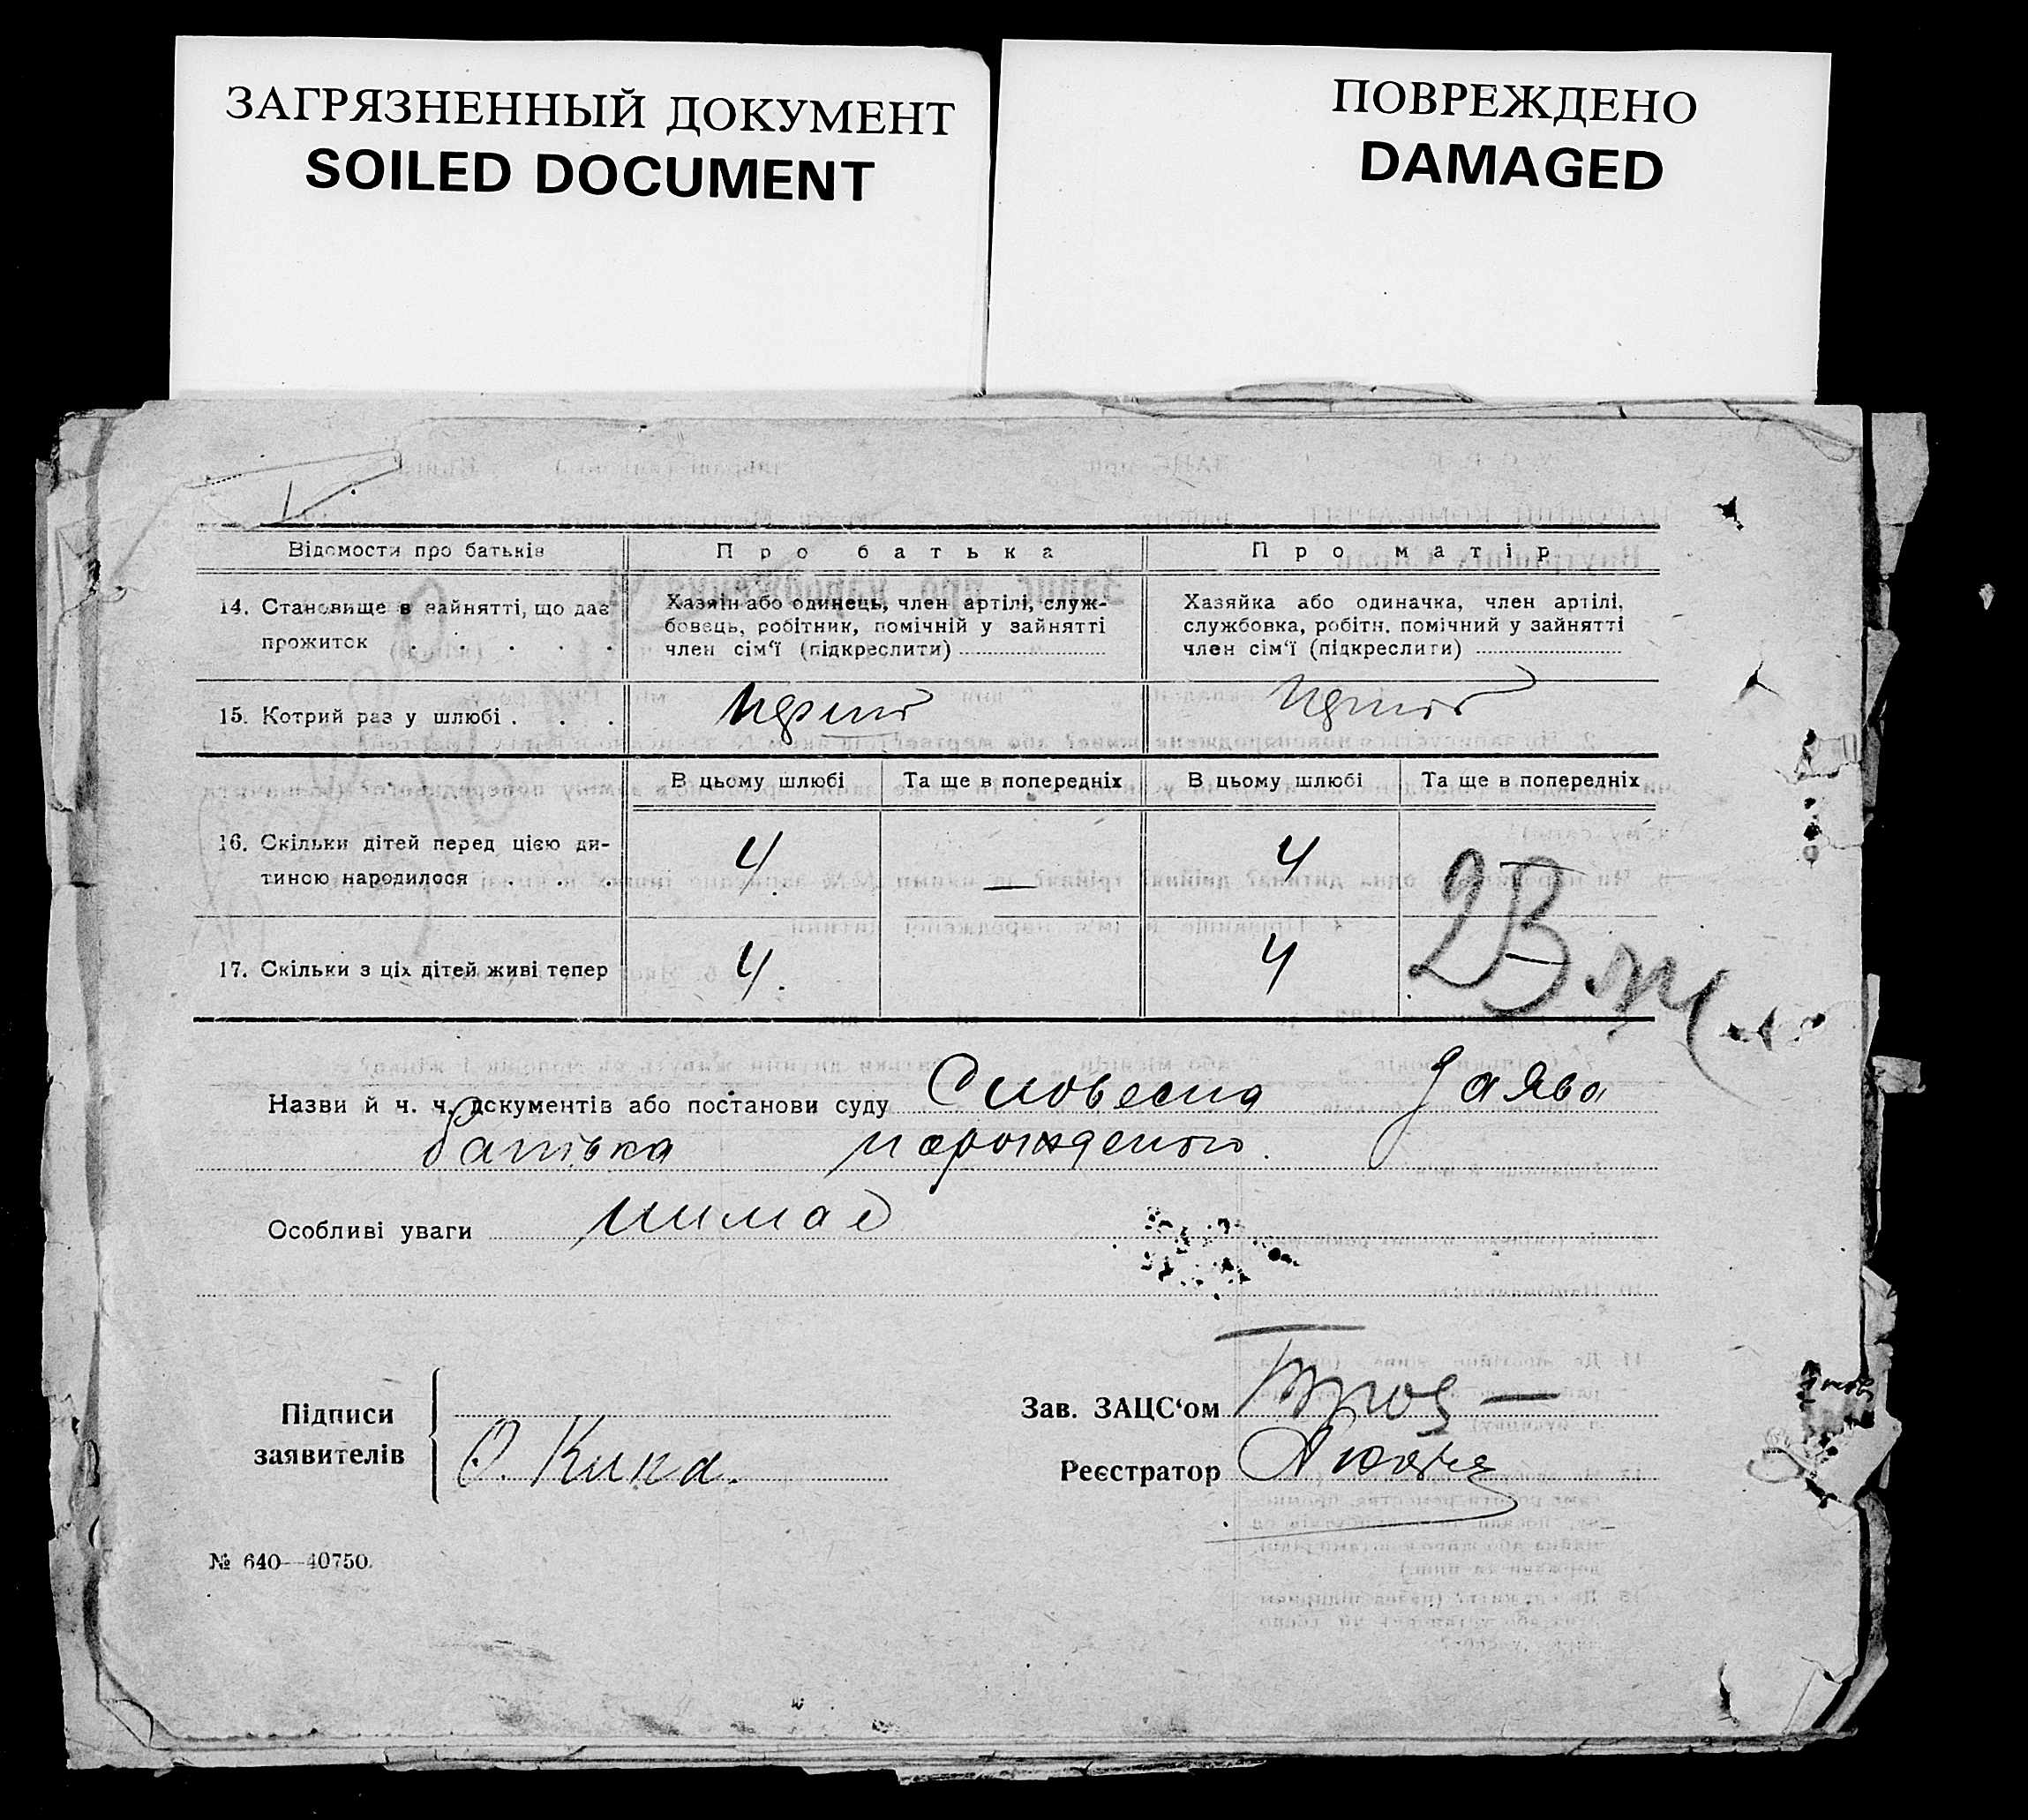 ЗАГРЯЗНЕННЫЙ ДОКУМЕНТ
SOILED DOCUMENT
ПОВРЕЖДЕНО
DAMAGED
Відомости про батьків
Про батька
Про матір
14. Становище в зайнятті, що дає
прожиток . . . . .
Хазяїн або одинець, член артілі, служ-
бовець, робітник, помічній у зайнятті
член сім'ї (підкреслити)
Хазяйка або одиначка, член артілі,
службовка, робітн. помічний у зайнятті
член сім'ї (підкреслити)
15. Котрий раз у шлюбі . . .
В цьому шлюбі
Та ще в попередніх
В цьому шлюбі
Та ще в попередніх
16. Скільки дітей перед цією ди-
тиною народилося . . .
4
—
4
17. Скільки з ціх дітей живі тепер
4.
4
Назви й ч. ч. документів або постанови суду Словесна Заява
батька нарожденого.
Особливі уваги нимає
Підписи
заявителів
О. Кика.
Зав. ЗАЦС'ом
Реєстратор
№ 640—40750.